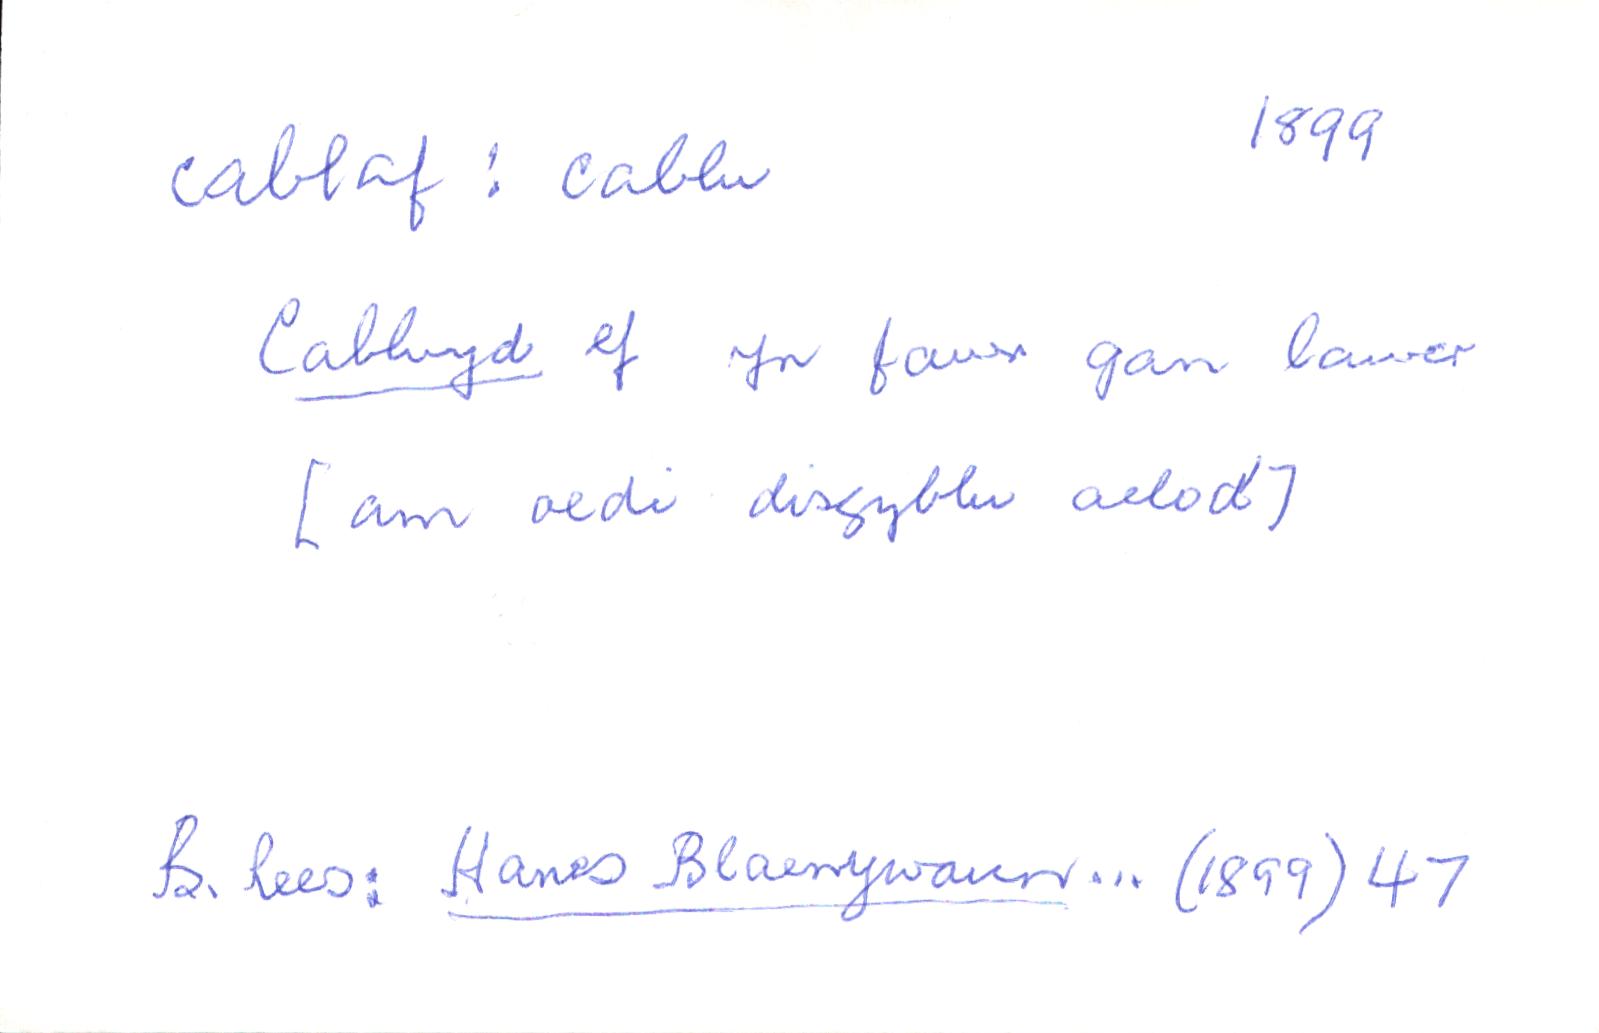 cablaf : cablu 1899
Cablwyd ef yn fawr gan lawer
[am oedi disgyblu aelod]
B. Rees: Hanes Blaenywaun... (1899) 47